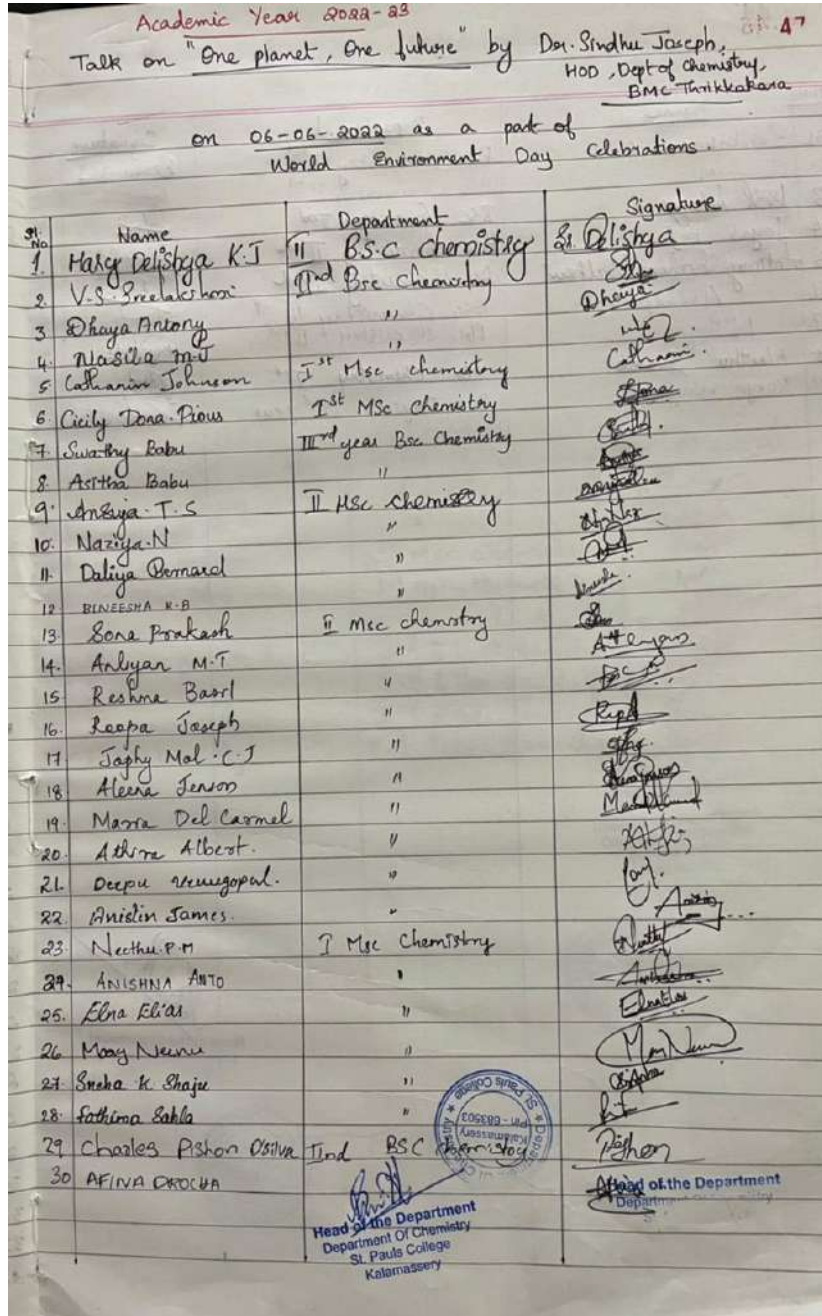 Academic Year 2022-23
47
Talk on "One planet, One future" by Dr. Sindhu Joseph,
HOD, Dept of Chemistry,
BMC Thrikkakara
on 06-06-2022 as a part of
World Environment Day Celebrations.
Sl. No Name Department Signature
1. Mary Delishya K.J II B.S.C chemistry Sr. Delishya
2. V.S. Sreelakshmi IInd Bsc Chemistry
3 Dhaya Antony " Dhaya
4. Nasila M.J "
5 Cathanin Johnson Ist Msc chemistry Cathanin.
6. Cicily Dona Pious Ist MSc Chemistry Dona
7. Swathy Babu IIIrd year Bsc Chemistry
8. Asitha Babu "
9. T.S II MSc chemistry
10. Naziya.N "
11. Daliya Bernard "
12 BINEESHA K.B "
13. Sona Prakash II Msc chemistry
14. M.T "
15 Reshma "
16. Roopa Joseph "
17 Japhy Mol.C.J "
18 Aleena Jenson "
19. Maria Del Carmel "
20. Athira Albert. "
21. Deepu Venugopal. "
22. Anistin James. "
23. Neethu.P.M I Msc Chemistry
24. ANISHNA ANTO "
25. Elna Elias "
26 Mary Neenu " Mary Neenu
27. Sneha K Shaju "
28. Fathima Sahla "
29 Charles Pishon D'silva IInd BSC Chemistry Pishon
30 AFINA DROCHA
St. Pauls College
Kalamassery
Pin - 683503
Head of the Department
Department Of Chemistry
St. Pauls College
Kalamassery
Head of the Department